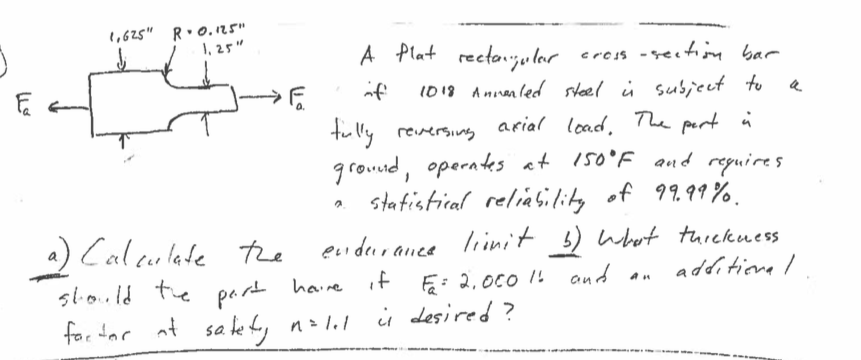 1,625" R = 0.125"
1.25"
Fa
Fa
A flat rectangular cross-section bar
of 1018 Annealed steel is subject to a
fully reversing axial load. The part is
ground, operates at 150°F and requires
a statistical reliability of 99.99%.
a) Calculate the endurance limit b) What thickness
should the part have if Fa = 2,000 lb and an additional
factor of safety n = 1.1 is desired?